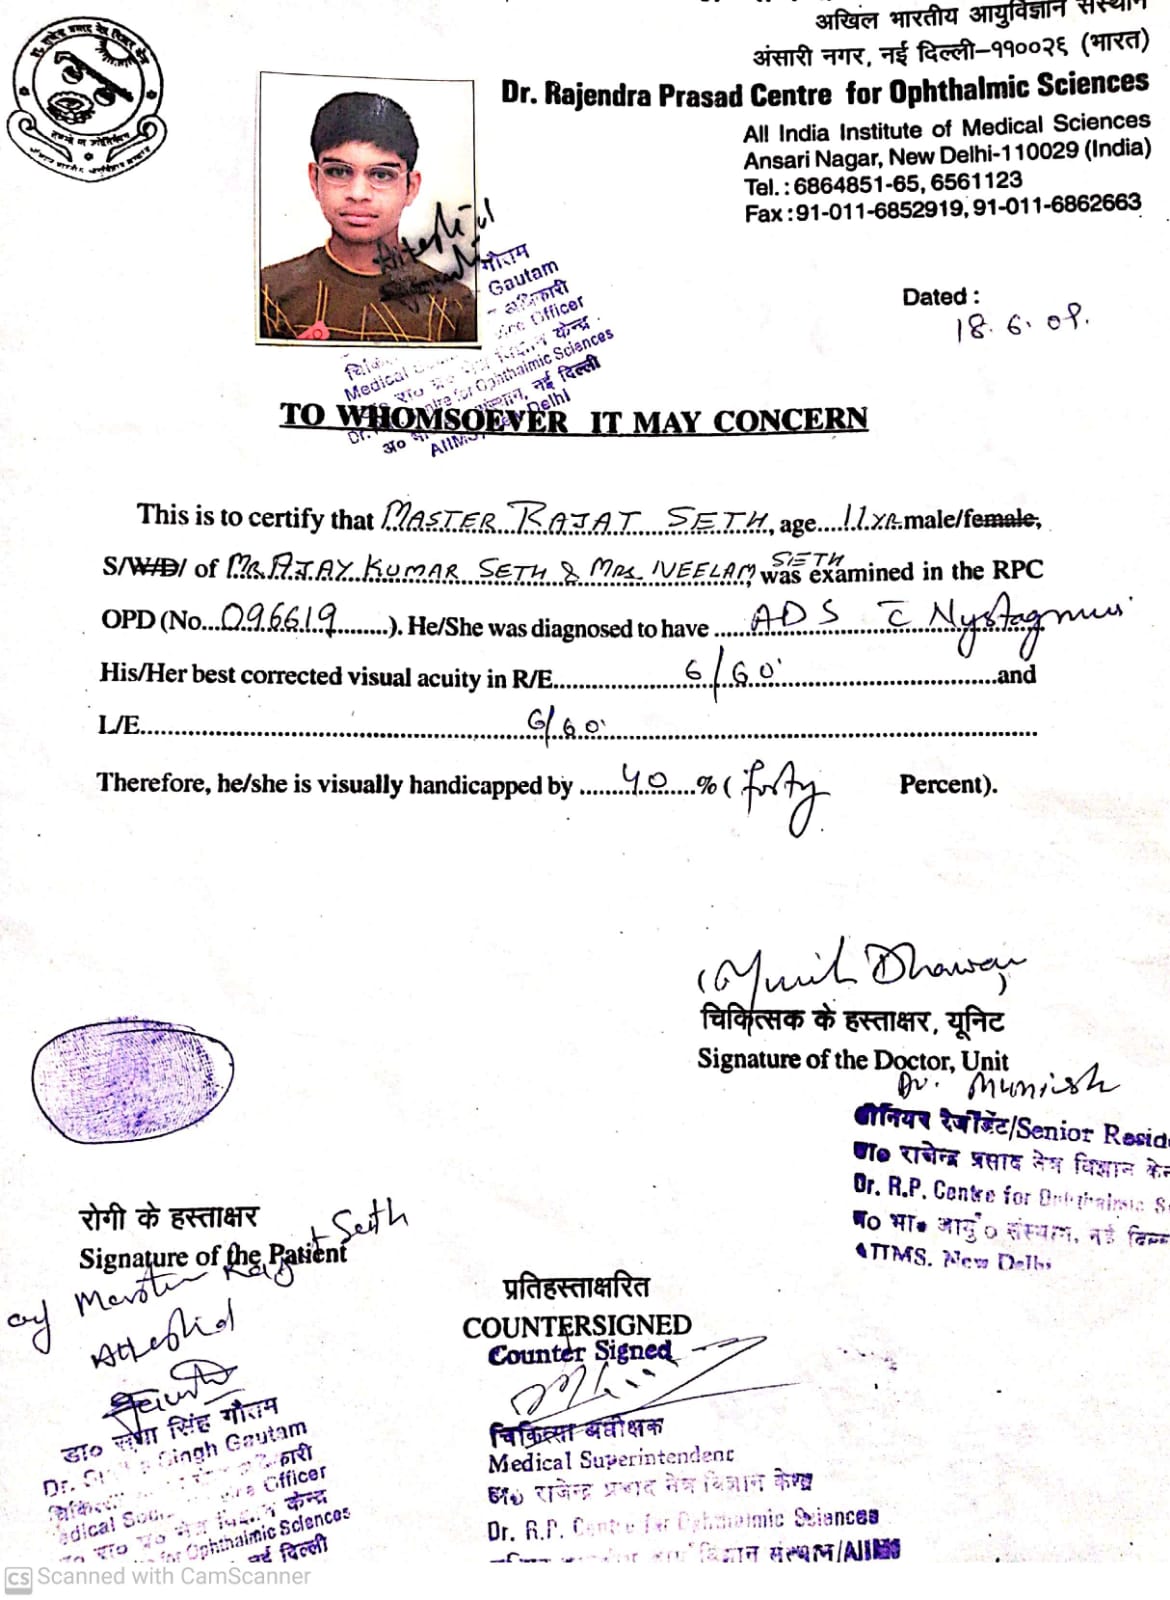 अखिल भारतीय आयुर्विज्ञान संस्थान
अंसारी नगर, नई दिल्ली–११००२६ (भारत)
Dr. Rajendra Prasad Centre for Ophthalmic Sciences
All India Institute of Medical Sciences
Ansari Nagar, New Delhi-110029 (India)
Tel.: 6864851-65, 6561123
Fax: 91-011-6852919, 91-011-6862663
Attested
गौतम
Gautam
Officer
Medical
Centre for Ophthalmic Sciences
नई दिल्ली
AIIMS, New Delhi
Dated :
18.6.09.
TO WHOMSOEVER IT MAY CONCERN
This is to certify that MASTER RAJAT SETH, age....11 YR.male/female,
S/W/D/ of MR. AJAY KUMAR SETH & MRS. NEELAM SETH, was examined in the RPC
OPD (No...096619........). He/She was diagnosed to have ......ADS c̄ Nystagmus
His/Her best corrected visual acuity in R/E................6/60................and
L/E................6/60................
Therefore, he/she is visually handicapped by ........40....% (forty Percent).
(Munish Dhawan)
चिकित्सक के हस्ताक्षर, यूनिट
Signature of the Doctor, Unit
Dr. Munish
सीनियर रेजीडेंट/Senior Resid
डा० राजेन्द्र प्रसाद नेत्र विज्ञान केन
Dr. R.P. Centre for Ophthalmic S
अ० भा० आयु० संस्थान, नई दिल्ल
AIIMS. New Delhi
रोगी के हस्ताक्षर
Signature of the Patient
of Master Rajat Seth
Attested
डा० सिंह गौतम
Dr. Singh Gautam
Officer
केन्द्र
for Ophthalmic Sciences
नई दिल्ली
प्रतिहस्ताक्षरित
COUNTERSIGNED
Counter Signed
चिकित्सा अधीक्षक
Medical Superintendent
डा० राजेन्द्र प्रसाद नेत्र विज्ञान केन्द्र
Dr. R.P. Centre for Ophthalmic Sciences
विज्ञान संस्थान/AIIMS
CS Scanned with CamScanner